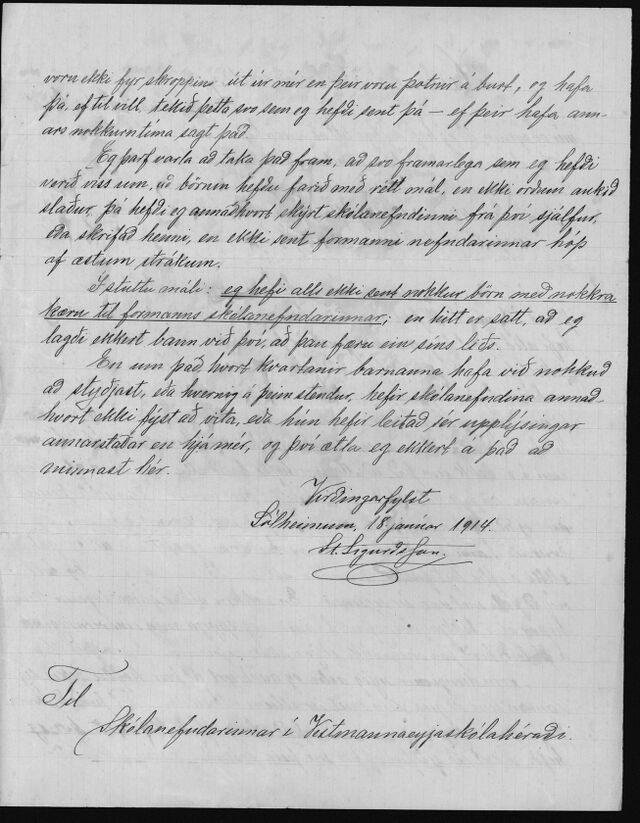 voru ekki fyr skroppin út úr mér en þeir voru þotnir á burt, og hafa
þá, ef til vill tekið þetta svo sem eg hefði sent þá – ef þeir hafa ann-
ars nokkurntíma sagt það.
Eg þarf varla að taka það fram, að svo framarlega sem eg hefði
verið viss um, að börnin hefðu farið með rétt mál, en ekki orðum aukið
slaður, þá hefði eg annaðhvort skýrt skólanefndinni frá því sjálfur,
eða skrifað henni, en ekki sent formanni nefndarinnar hóp
af æstum strákum.
Í stuttu máli: eg hefi alls ekki sent nokkur börn með nokkra
kæru til formanns skólanefndarinnar; en hitt er satt, að eg
lagði ekkert bann við því, að þau færu ein síns liðs.
En um það, hvort kvartanir barnanna hafa við nokkuð
að styðjast, eða hvernig á þeim stendur, hefir skólanefndina annað-
hvort ekki fýst að vita, eða hún hefir leitað sér upplýsingar
annarstaðar en hjá mér, og því ætla eg ekkert á það að
minnast hér.
Virðingarfylst
Sólheimum, 18. janúar 1914.
St. Sigurðsson.
Til
Skólanefndarinnar í Vestmannaeyjaskólahéraði.